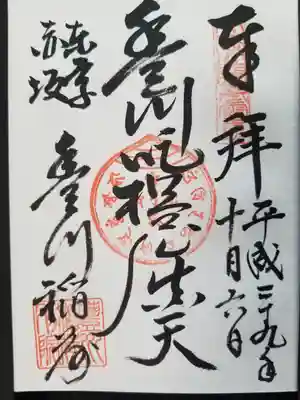 奉拝
平成二十九年
十月六日
豊川吒枳尼真天
赤坂
豊川稲荷